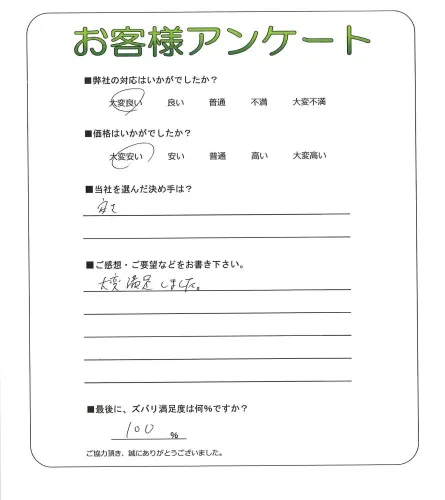 お客様アンケート
■弊社の対応はいかがでしたか?
大変良い 良い 普通 不満 大変不満
■価格はいかがでしたか?
大変安い 安い 普通 高い 大変高い
■当社を選んだ決め手は?
■ご感想・ご要望などをお書き下さい。
大変満足しました。
■最後に、ズバリ満足度は何%ですか?
100 %
ご協力頂き、誠にありがとうございました。